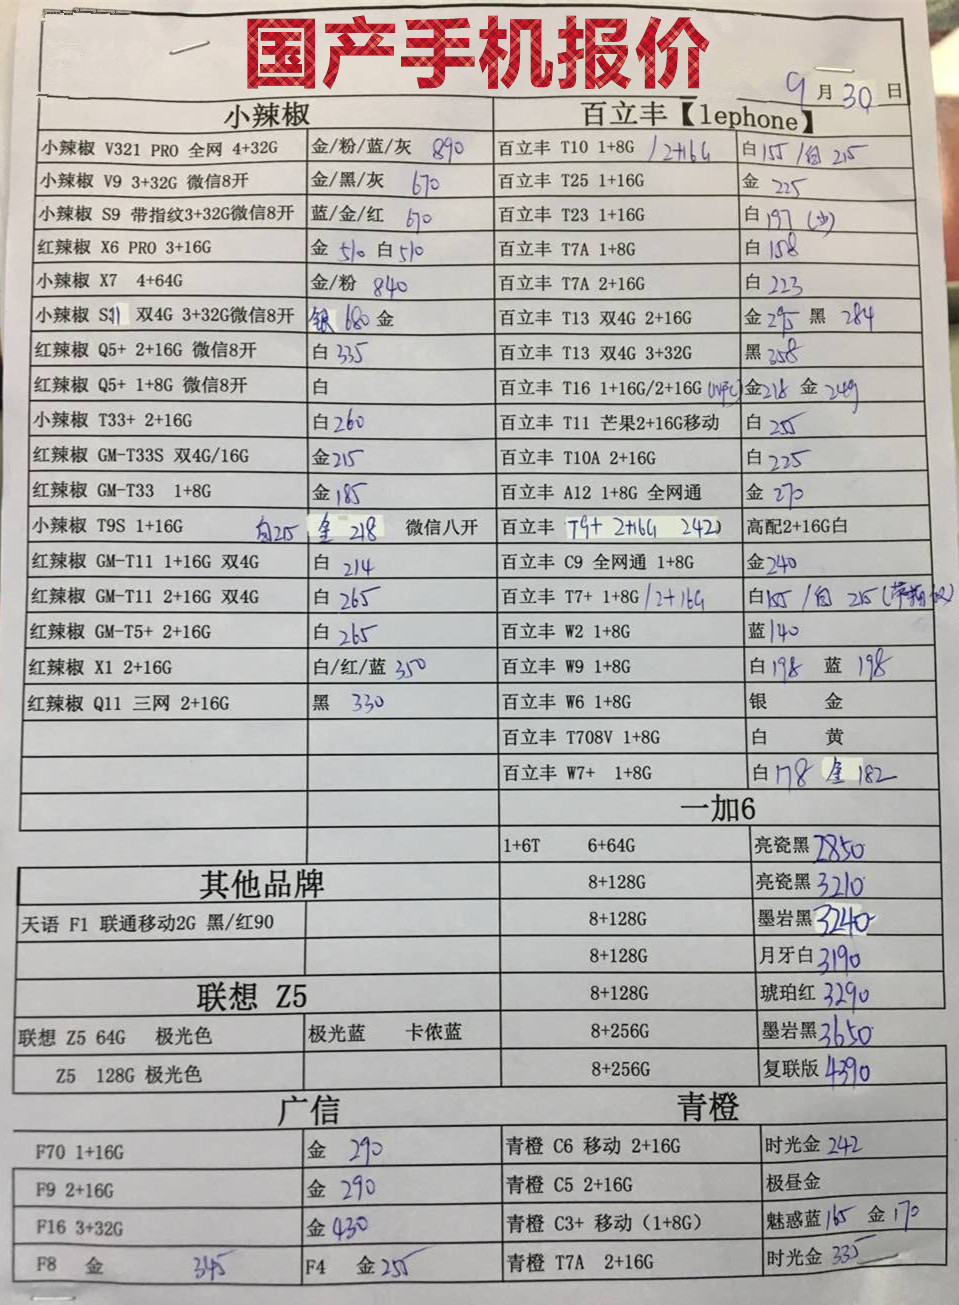 国产手机报价
9月30日
小辣椒
小辣椒 V321 PRO 全网 4+32G 金/粉/蓝/灰 890
小辣椒 V9 3+32G 微信8开 金/黑/灰 670
小辣椒 S9 带指纹3+32G微信8开 蓝/金/红 670
红辣椒 X6 PRO 3+16G 金 510 白 510
小辣椒 X7 4+64G 金/粉 840
小辣椒 S11 双4G 3+32G微信8开 银 680 金
红辣椒 Q5+ 2+16G 微信8开 白 335
红辣椒 Q5+ 1+8G 微信8开 白
小辣椒 T33+ 2+16G 白 260
红辣椒 GM-T33S 双4G/16G 金 215
红辣椒 GM-T33 1+8G 金 185
小辣椒 T9S 1+16G 白215 金 218 微信八开
红辣椒 GM-T11 1+16G 双4G 白 214
红辣椒 GM-T11 2+16G 双4G 白 265
红辣椒 GM-T5+ 2+16G 白 265
红辣椒 X1 2+16G 白/红/蓝 350
红辣椒 Q11 三网 2+16G 黑 330
百立丰【lephone】
百立丰 T10 1+8G /2+16G 白 155 /白 215
百立丰 T25 1+16G 金 225
百立丰 T23 1+16G 白 197 (少)
百立丰 T7A 1+8G 白 158
百立丰 T7A 2+16G 白 223
百立丰 T13 双4G 2+16G 金 295 黑 284
百立丰 T13 双4G 3+32G 黑 358
百立丰 T16 1+16G/2+16G 金 218 金 249
百立丰 T11 芒果2+16G移动 白 255
百立丰 T10A 2+16G 白 225
百立丰 A12 1+8G 全网通 金 270
百立丰 T9+ 2+16G 242 高配2+16G白
百立丰 C9 全网通 1+8G 金 240
百立丰 T7+ 1+8G /2+16G 白 155 /白 215
百立丰 W2 1+8G 蓝 140
百立丰 W9 1+8G 白 198 蓝 198
百立丰 W6 1+8G 银 金
百立丰 T708V 1+8G 白 黄
百立丰 W7+ 1+8G 白 178 金 182
一加6
1+6T 6+64G 亮瓷黑 2850
8+128G 亮瓷黑 3210
8+128G 墨岩黑 3240
8+128G 月牙白 3190
8+128G 琥珀红 3290
8+256G 墨岩黑 3650
8+256G 复联版 4390
其他品牌
天语 F1 联通移动2G 黑/红90
联想 Z5
联想 Z5 64G 极光色 极光蓝 卡侬蓝
Z5 128G 极光色
广信
F70 1+16G 金 290
F9 2+16G 金 290
F16 3+32G 金 430
F8 金 345 F4 金 255
青橙
青橙 C6 移动 2+16G 时光金 242
青橙 C5 2+16G 极昼金
青橙 C3+ 移动（1+8G） 魅惑蓝 165 金 170
青橙 T7A 2+16G 时光金 335